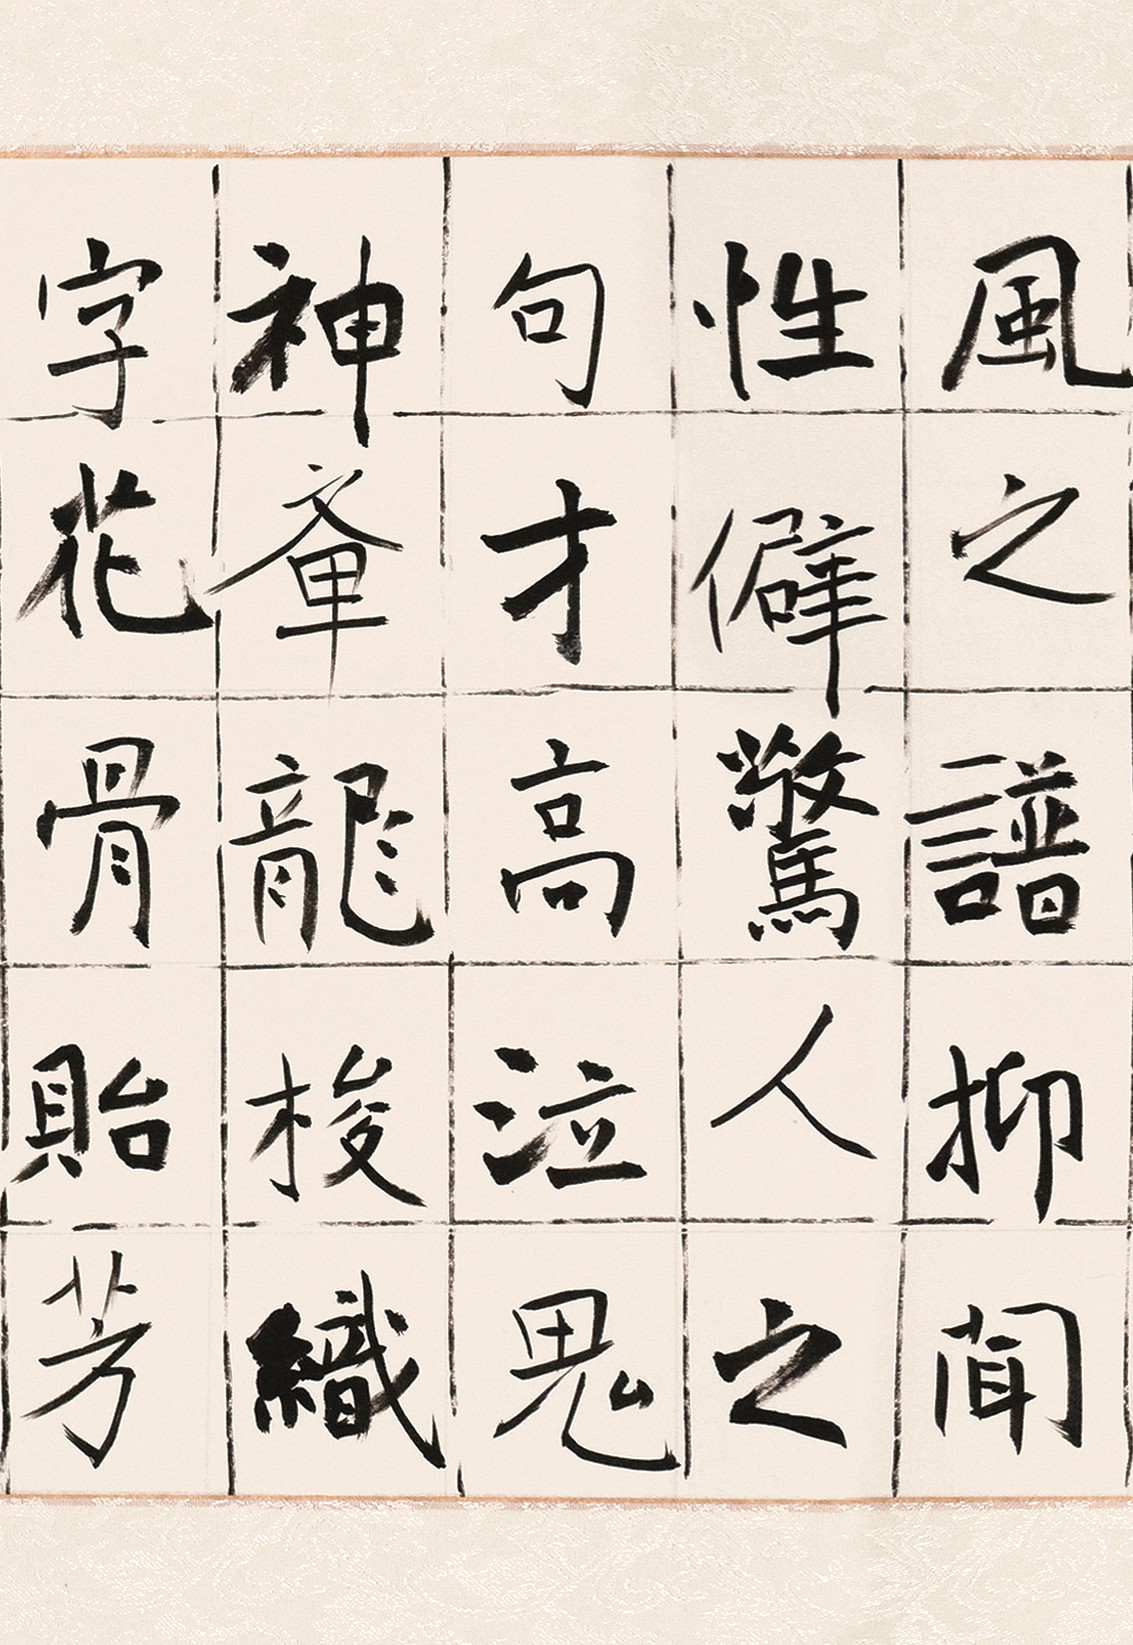 風之譜抑聞
性僻驚人之
句才高泣鬼
神龍梭織
字花骨貽芳